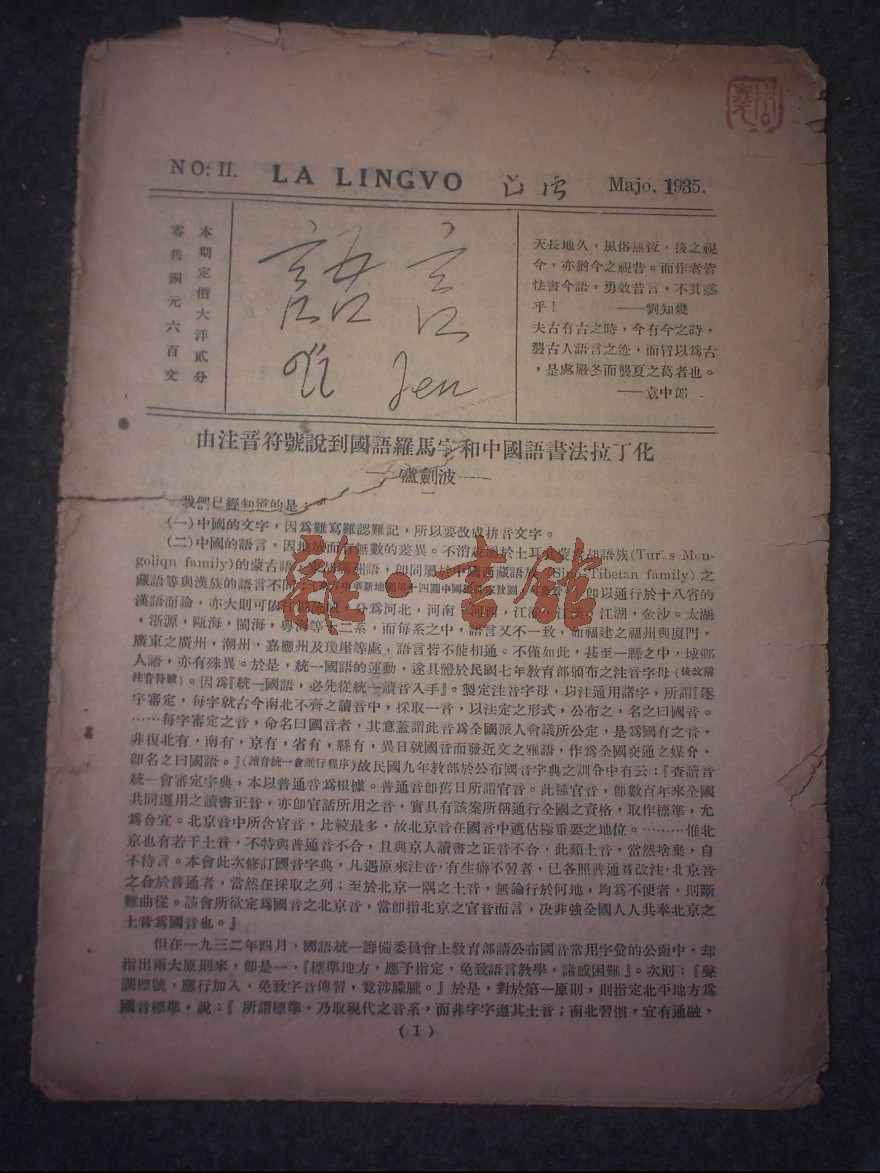 NO: II. LA LINGVO Majo. 1935.
本期定價大洋貳分
零售銅元六百文
語言
Yi Jen
天長地久，風俗無恆，後之視
今，亦猶今之視昔。而作者皆
怯書今語，勇效昔言，不其惑
乎！ ——劉知幾
夫古有古之時，今有今之時，
襲古人語言之迹，而冒以爲古
，是處嚴冬而襲夏之葛者也。
——袁中郎
由注音符號說到國語羅馬字和中國語書法拉丁化
——盧劍波——
一
我們已經知道的是：
(一)中國的文字，因爲難寫難認難記，所以要改成拼音文字。
(二)中國的語言，因地域而有無數的差異。不消說屬於土耳其蒙古如語族(Turks Mon-
goliqn family)的蒙古語，滿洲語，卽同屬於中國西藏語族(Sino-Tibetan family)之
藏語等與漢族的語言不同，卽以通行於十八省的
漢語而論，亦大則可依江湖流域，分爲河北，河南，河西，江淮，江漢，江湖，金沙。太湖
，浙源，甌海，閩海，粵海等十二系，而每系之中，語言又不一致，如福建之福州與廈門，
廣東之廣州，潮州，嘉應州及瓊崖等處，語言皆不能相通。不僅如此，甚至一縣之中，城鄉
人語，亦有殊異。於是，統一國語的運動，遂具體於民國七年敎育部頒布之注音字母(後改稱
注音符號)。因爲『統一國語，必先從統一讀音入手』。製定注音字母，以注通用諸字，所謂『逐
字審定，每字就古今南北不齊之讀音中，採取一音，以法定之形式，公布之，名之曰國音。
……每字審定之音，命名曰國音者，其意蓋謂此音爲全國派人會議所公定，是爲國有之音，
非復北有，南有，京有，省有，縣有，異日就國音而發近文之雅語，作爲全國交通之媒介，
卽名之曰國語。』(讀音統一會進行程序)故民國九年敎部於公布國音字典之訓令中有云：『查讀音
統一會審定字典，本以普通音爲根據。普通音卽舊日所謂官音。此種官音，卽數百年來全國
共同遵用之讀書正音，亦卽官話所用之音，實具有該案所稱通行全國之資格，取作標準，允
爲合宜。北京音中所含官音，比較最多，故北京音在國音中適佔極重要之地位。………惟北
京也有若干土音，不特與普通音不合，且與京人讀書之正音不合，此類土音，當然捨棄，自
不待言。本會此次修訂國音字典，凡遇原來注音，有生僻不習者，已各照普通音改注，北京音
之合於普通者，當然在採取之列；至於北京一隅之土音，無論行於何地，均爲不便者，則斷
難曲從。該會所欲定爲國音之北京音，當卽指北京之官音而言，決非强全國人人共奉北京之
土音爲國音也。』
但在一九三二年四月，國語統一籌備委員會上敎育部請公布國音常用字彙的公函中，却
指出兩大原則來，卽是一，『標準地方，應予指定，免致語言敎學，諸感困難』。次則：『聲
調標號，應行加入，免致字音傳習，竟涉朦朧。』於是，對於第一原則，則指定北平地方爲
國音標準，說：『所謂標準，乃取現代之音系，而非字字遵其土音；南北習慣，宜有通融，
(1)
雜·書館